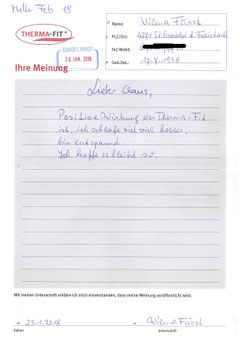 Mitte Feb 18
THERMA-FIT®
30. JAN. 2018
Name: Vilma Fürst
PLZ/Ort: 4271 St. Oswald b. Freistadt
Tel./Mobil:
Geb.Dat.: 17.4.1938
Ihre Meinung
Lieber Claus,
Positive Wirkung der Therma-Fit
ist, ich schlafe viel viel besser,
bin entspannt.
Ich hoffe es bleibt so.
Mit meiner Unterschrift erkläre ich mich einverstanden, dass meine Meinung veröffentlicht wird.
23.1.2018
Vilma Fürst
Datum
Unterschrift